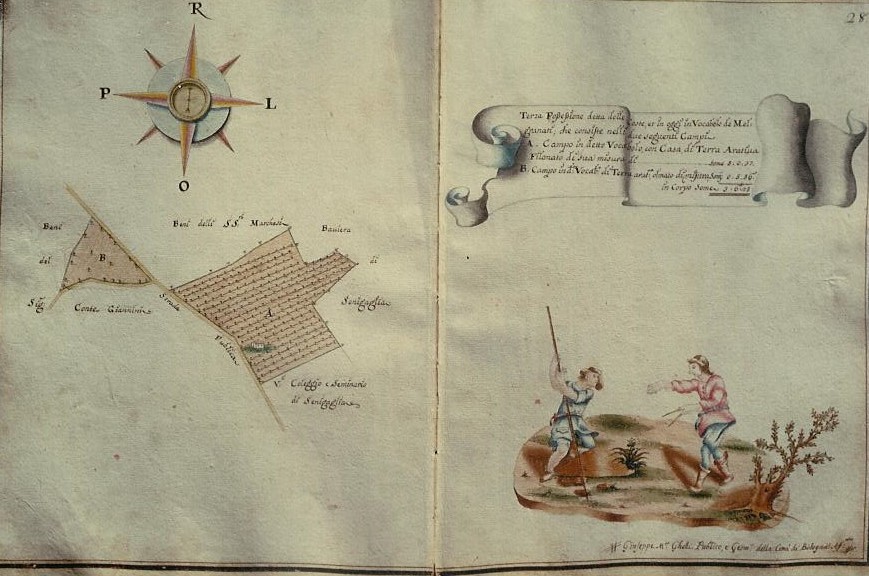 R
P
L
O
Beni
del
Sig.
Conte Giannini
B
Beni delli SS.ri Marchesi
Baviera
di
Senigaglia
A
Strada
Publica
V. Coleggio e Seminario
di Senigaglia
28
Terza Possessione detta delle Coste, et in oggi in Vocabolo de Mel:
gnanati, che consiste nelli due seguenti Campi
A. Campo in detto Vocabolo, con Casa, di Terra Aratiua
Filonato di sua misura di Some
B. Campo in d. Vocab. di Terra arat. olmato di misura Som.
in Corpo Some
Giuseppe M. Ghelli Publico, e Geom. della Città di Bologna